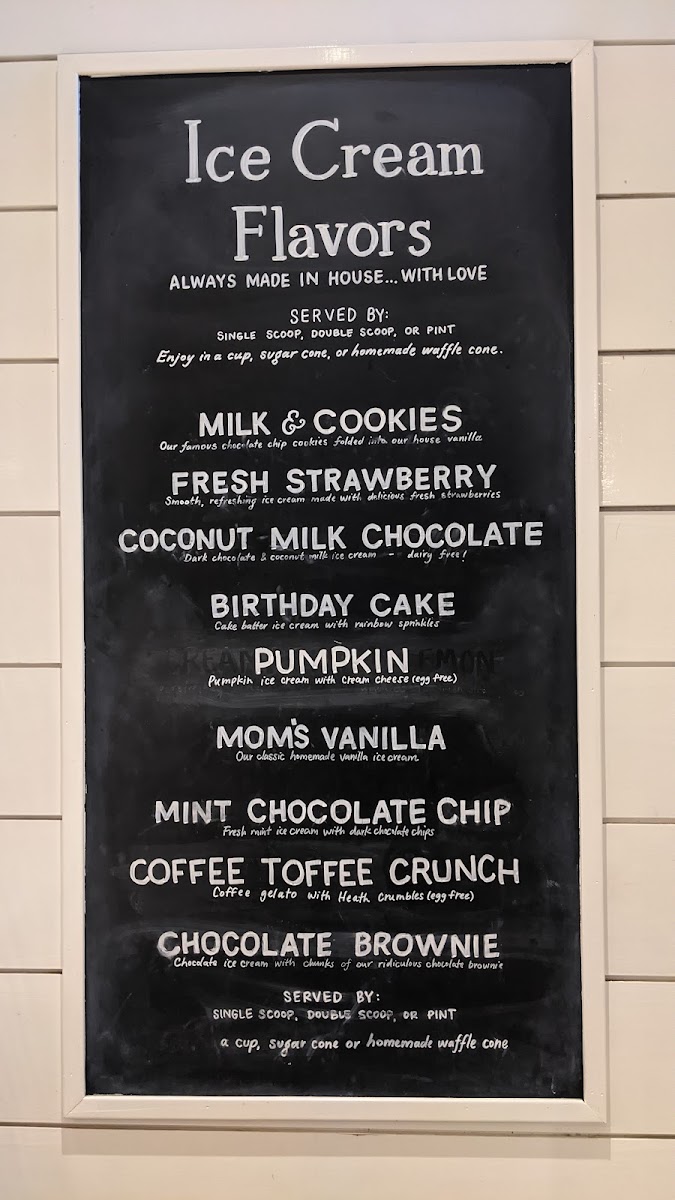 Ice Cream
Flavors
ALWAYS MADE IN HOUSE... WITH LOVE
SERVED BY:
SINGLE SCOOP, DOUBLE SCOOP, OR PINT
Enjoy in a cup, sugar cone, or homemade waffle cone.
MILK & COOKIES
Our famous chocolate chip cookies folded into our house vanilla
FRESH STRAWBERRY
Smooth, refreshing ice cream made with delicious fresh strawberries
COCONUT MILK CHOCOLATE
Dark chocolate & coconut milk ice cream - dairy free!
BIRTHDAY CAKE
Cake batter ice cream with rainbow sprinkles
PUMPKIN
Pumpkin ice cream with cream cheese (egg free)
MOM'S VANILLA
Our classic homemade vanilla ice cream
MINT CHOCOLATE CHIP
Fresh mint ice cream with dark chocolate chips
COFFEE TOFFEE CRUNCH
Coffee gelato with Heath crumbles (egg free)
CHOCOLATE BROWNIE
Chocolate ice cream with chunks of our ridiculous chocolate brownie
SERVED BY:
SINGLE SCOOP, DOUBLE SCOOP, OR PINT
a cup, sugar cone or homemade waffle cone